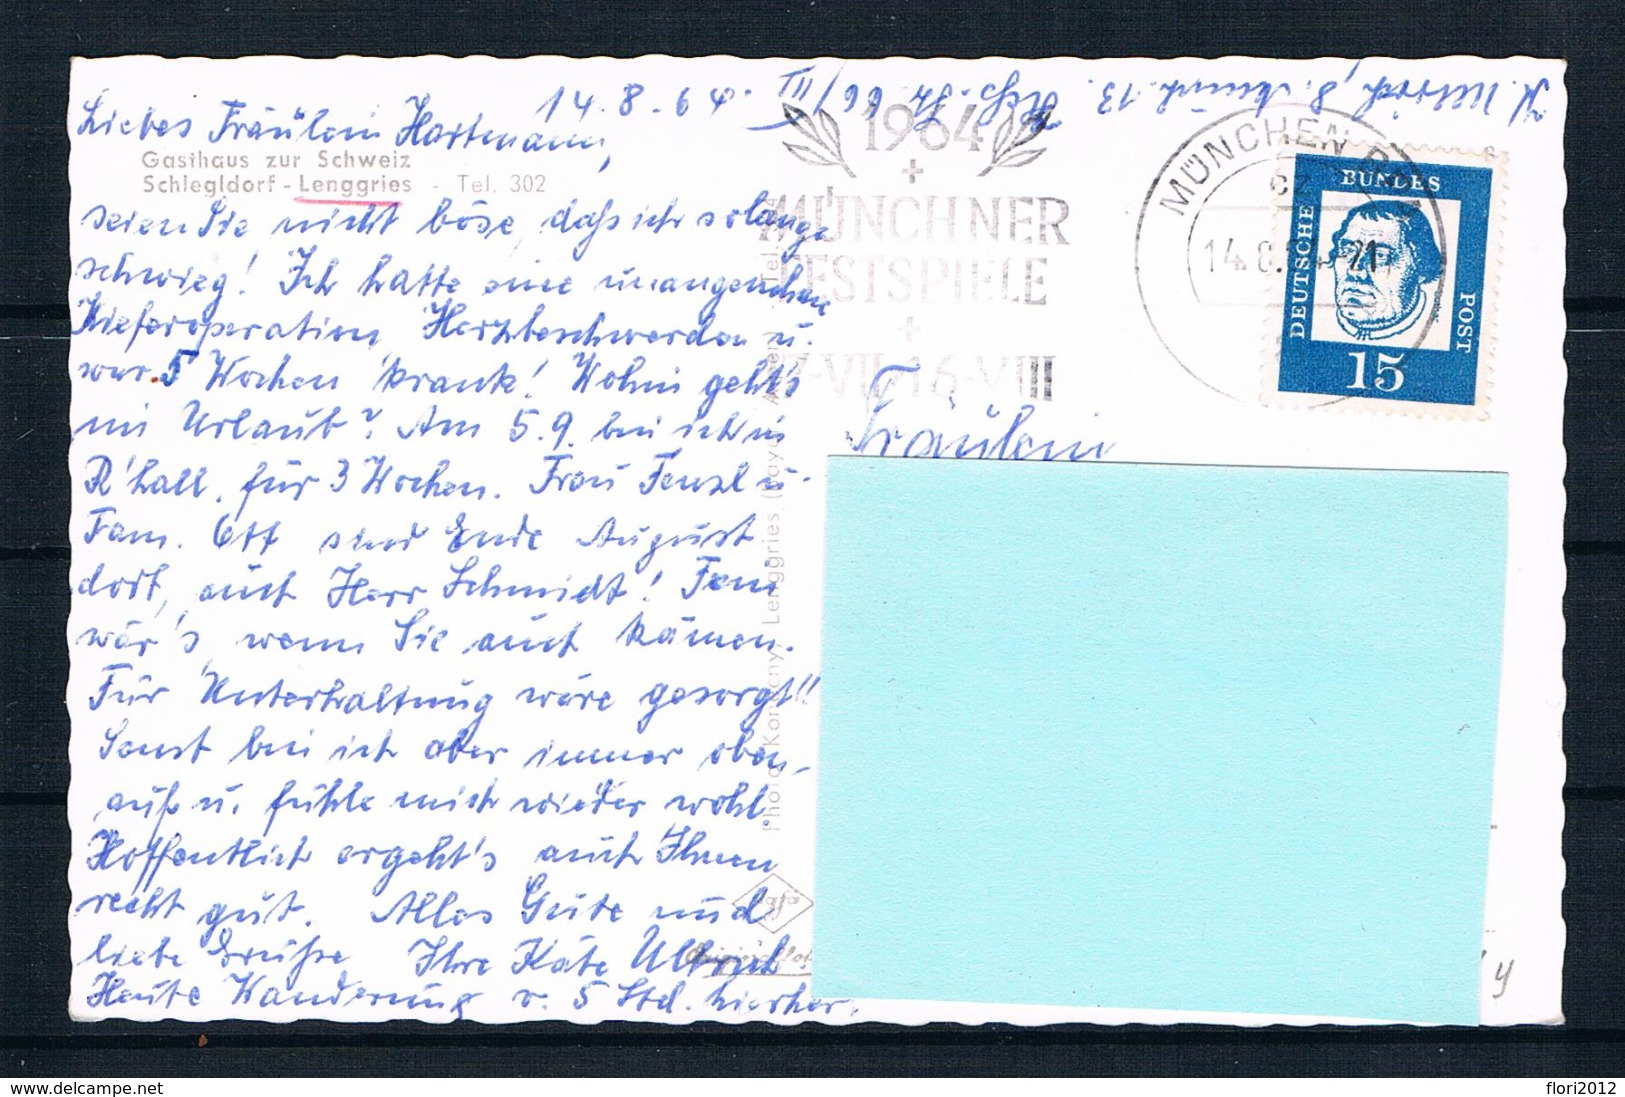 K. Ullrich, 8 Münch. 13
14.8.64.
Liebes Fräulein Hartmann,
Gasthaus zur Schweiz
Schlegldorf - Lenggries - Tel. 302
seien Sie nicht böse, daß ich solange
schwieg! Ich hatte eine unangenehme
Kieferoperation, Herzbeschwerden u.
war 5 Wochen krank! Wohin geht's
im Urlaub? Am 5.9. bin ich in
R'hall, für 3 Wochen. Frau Fenzl u.
Fam. Ott sind Ende August
dort, auch Herr Schmidt! Fein
wär's, wenn Sie auch kämen.
Für Unterhaltung wäre gesorgt!!
Sonst bin ich aber immer oben-
auf u. fühle mich wieder wohl
Hoffentlich ergeht's auch Ihnen
recht gut. Alles Gute und
liebe Grüße Ihre Käte Ullrich.
Heute Wanderung v. 5 Std. hierher.
1964
+
MÜNCHNER
FESTSPIELE
+
7-VII-16-VIII
MÜNCHEN
14.8.
-21
DEUTSCHE
BUNDES
POST
15
Fräulein
Lenggries
Agfa
flori2012
www.delcampe.net